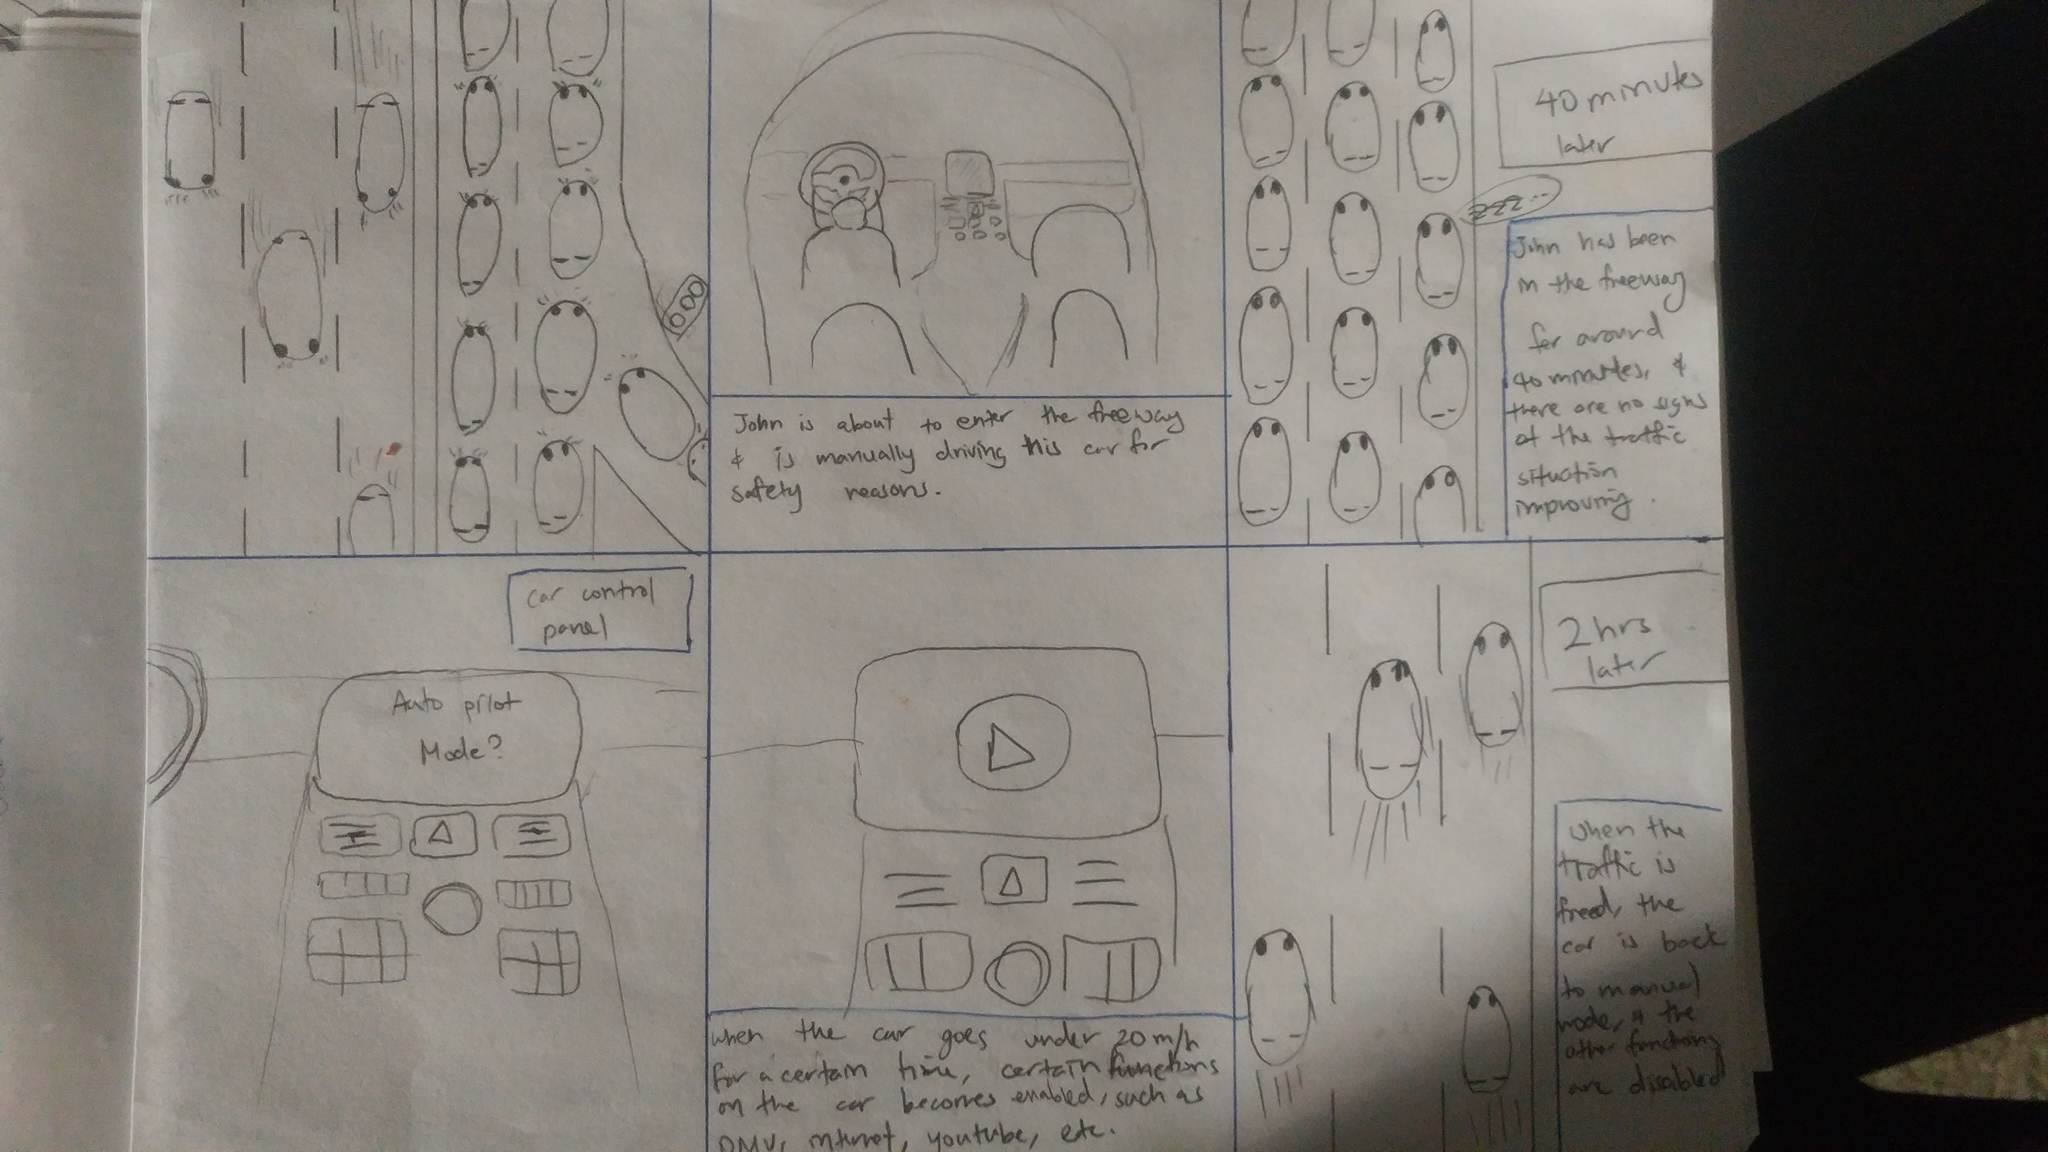 John is about to enter the freeway
& is manually driving this car for
safety reasons.
40 minutes
later
zzz...
John has been
in the freeway
for around
40 minutes, &
there are no signs
of the traffic
situation
improving.
Car control
panel
Auto pilot
Mode?
When the car goes under 20 m/h
for a certain time, certain functions
on the car becomes enabled, such as
DMV, internet, youtube, etc.
2 hrs
later
when the
traffic is
freed, the
car is back
to manual
mode, & the
other functions
are disabled